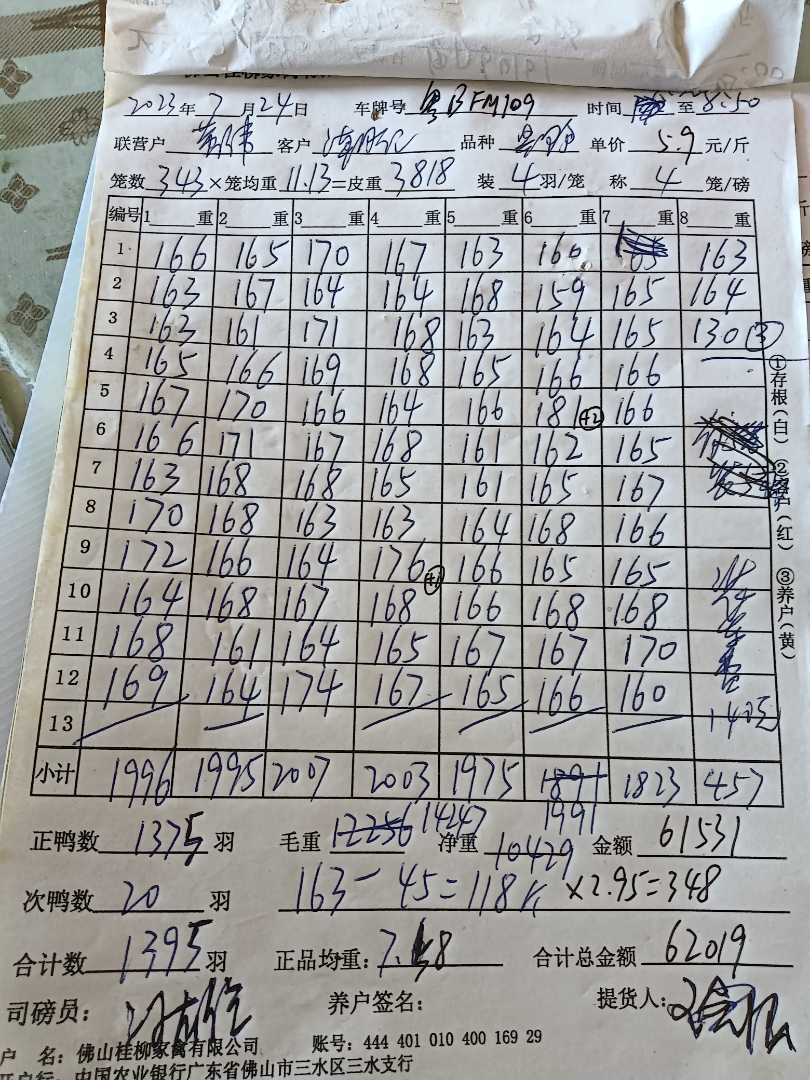 2023年7月24日 车牌号 粤BFM109 时间 至8:50
联营户 客户 品种 单价 5.9 元/斤
笼数 343 ×笼均重 11.13 =皮重 3818 装 4 羽/笼 称 4 笼/磅
编号 1 重 2 重 3 重 4 重 5 重 6 重 7 重 8 重
1 166 165 170 167 163 160 163
2 163 167 164 164 168 159 165 164
3 163 161 171 168 163 164 165 130 ③
4 165 166 169 168 165 166 166
5 167 170 166 164 166 181 +2 166
6 166 171 167 168 161 162 165
7 163 168 168 165 161 165 167
8 170 168 163 163 164 168 166
9 172 166 164 176 +1 166 165 165
10 164 168 167 168 166 168 168
11 168 161 164 165 167 167 170
12 169 164 174 167 165 166 160
13
小计 1996 1995 2007 2003 1975 1891 1823 457
1991
正鸭数 1375 羽 毛重 12256 14247 净重 10429 金额 61531
次鸭数 20 羽 163-45=118 ×2.95=348
合计数 1395 羽 正品均重: 7.58 合计总金额 62019
司磅员: 养户签名: 提货人:
户 名: 佛山桂柳家禽有限公司 账号: 444 401 010 400 169 29
开户行: 中国农业银行广东省佛山市三水区三水支行
①存根(白) ②客户(红) ③养户(黄)